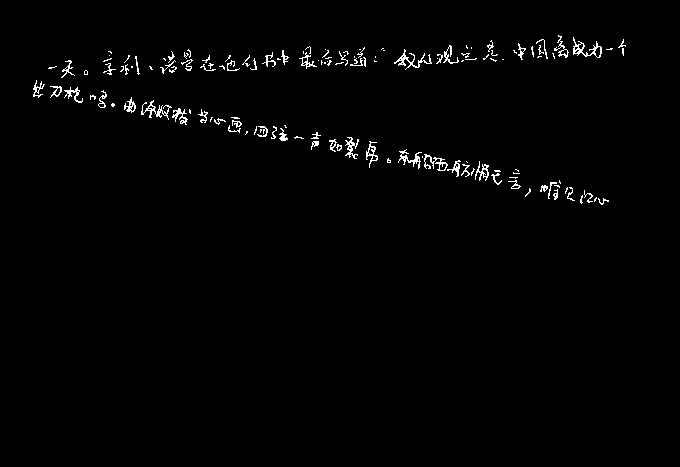 一天。亨利、诺曼在他的书中最后写道:"我的观点是 中国离成为一个
刀枪鸣。曲终收拨当心画,四弦一声如裂帛。东船西舫悄无言,唯见江心